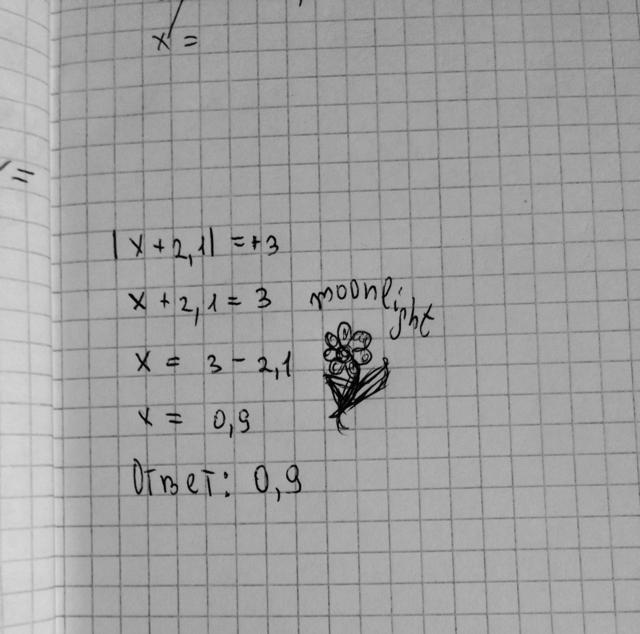 x =
=
|x + 2,1| = +3
x + 2,1 = 3
moonlight
x = 3 - 2,1
x = 0,9
Ответ: 0,9